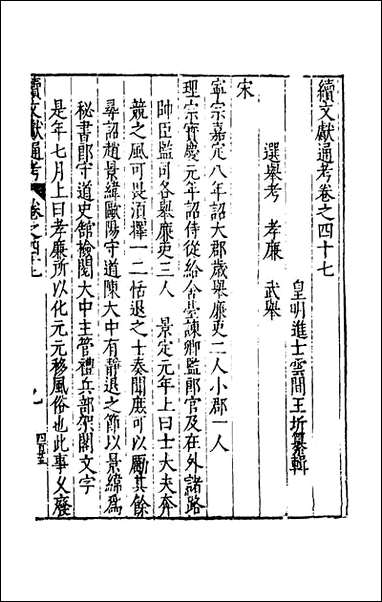 續文獻通考卷之四十七
皇明進士雲間王圻纂輯
選舉考 孝廉 武舉
宋
寧宗嘉定八年詔大郡歲舉廉吏二人小郡一人
理宗寶慶元年詔侍從給舍臺諫卿監郎官及在外諸路
帥臣監司各舉廉吏三人 景定元年上曰士大夫奔
競之風可畏須擇一二恬退之士奏聞庶可以勵其餘
尋詔趙景緯歐陽守道陳大中有靜退之節以景緯為
秘書郎守道史館檢閱大中主管禮兵部架閣文字
是年七月上曰孝廉所以化元元移風俗也此事久廢
續文獻通考 卷之四十七